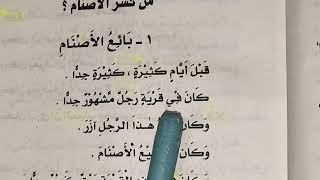 من كسر الأصنام ؟
١ - بَائِعُ الأَصْنَامِ
قَبْلَ أَيَّامٍ كَثِيرَةٍ ، كَثِيرَةٍ جِدًّا .
كَانَ فِي قَرْيَةٍ رَجُلٌ مَشْهُورٌ جِدًّا .
وَكَانَ هٰذَا الرَّجُلِ آزَرَ .
وَكَانَ الأَصْنَامَ .